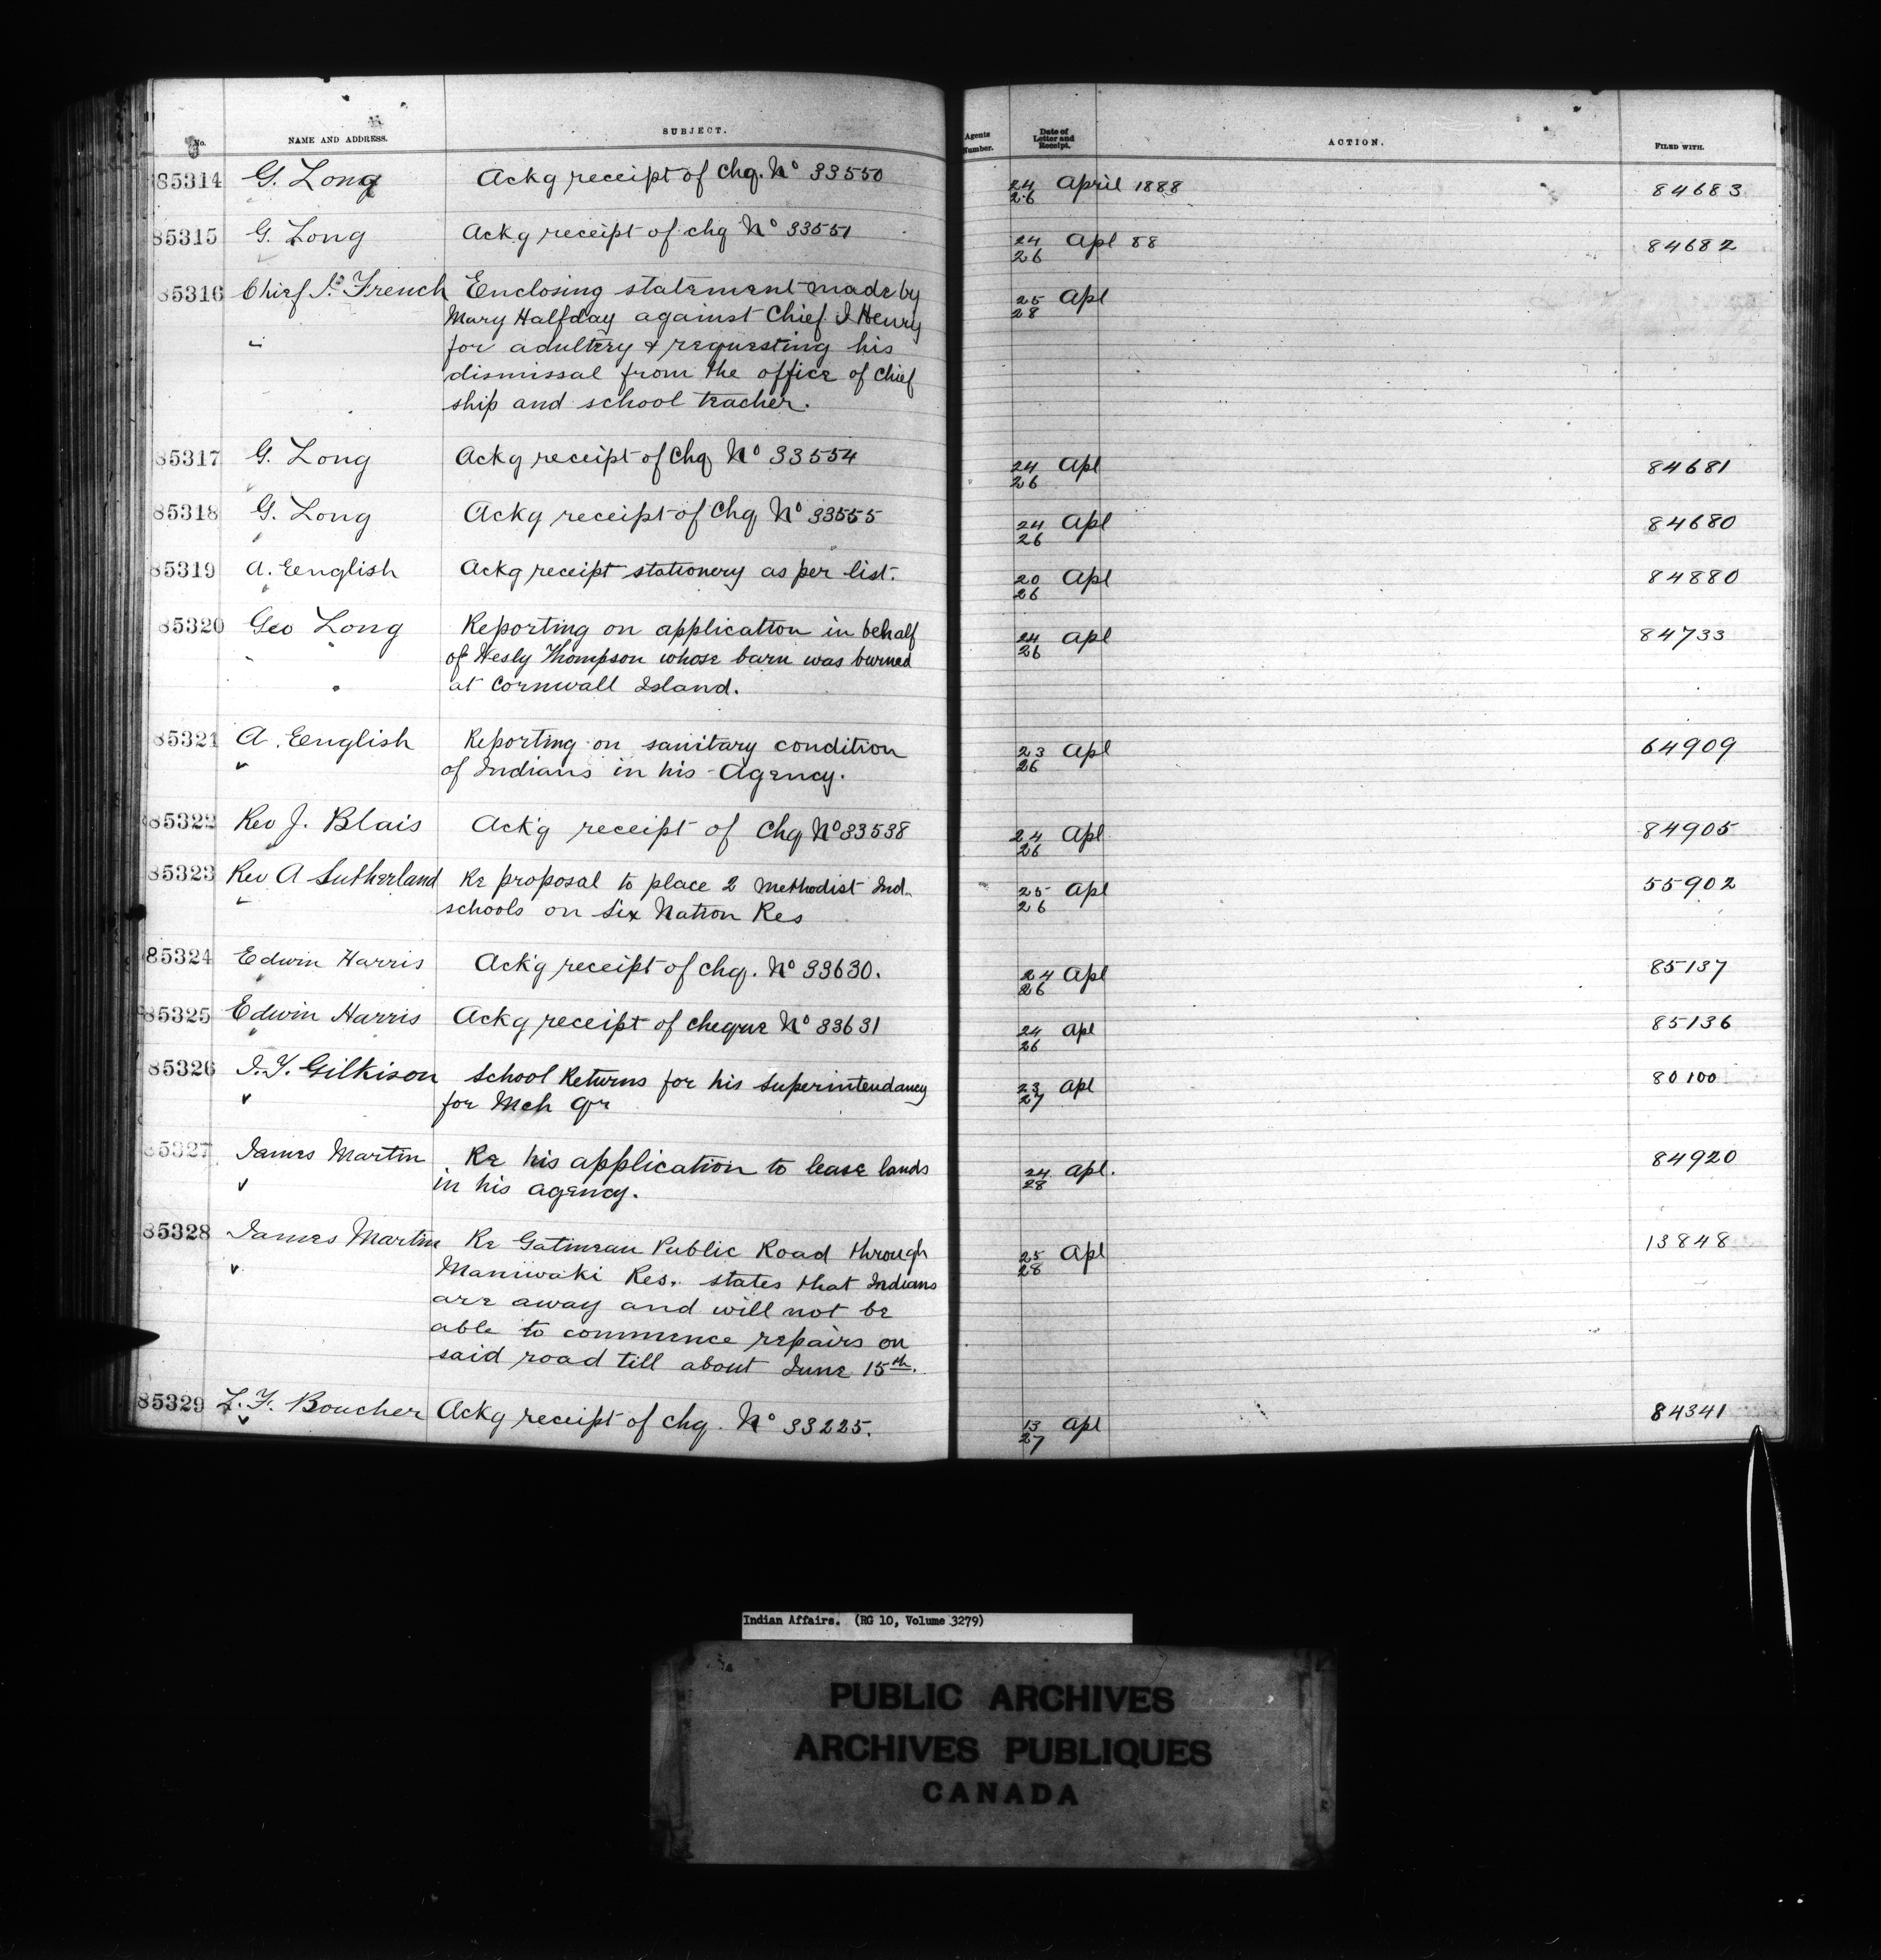 No. NAME AND ADDRESS. SUBJECT. Agents Number. Date of Letter and Receipt. ACTION. FILED WITH.
85314 G. Long Ackg receipt of Chq. No 33550 24/26 April 1888 84683
85315 G. Long Ackg receipt of chq No 33551 24/26 Apl 88 84682
85316 Chief French Enclosing statement made by 25/28 Apl
Mary Halfday against Chief I Henry
for adultery & requesting his
dismissal from the office of chief
ship and school teacher.
85317 G. Long Ackg receipt of Chq No 33554 24/26 Apl 84681
85318 G. Long Ackg receipt of Chq No 33555 24/26 Apl 84680
85319 A. Eenglish Ackg receipt stationery as per list. 20/26 Apl 84880
85320 Geo Long Reporting on application in behalf 24/26 Apl 84733
of Wesly Thompson whose barn was burned
at Cornwall Island.
85321 A. Eenglish Reporting on sanitary condition 23/26 Apl 64909
of Indians in his Agency.
85322 Rev J. Blais Ack'g receipt of Chq No 33538 24/26 Apl 84905
85323 Rev A Sutherland Re proposal to place 2 Methodist Ind. 25/26 Apl 55902
schools on Six Nation Res
85324 Edwin Harris Ack'g receipt of chq. No 33630. 24/26 Apl 85137
85325 Edwin Harris Ackg receipt of cheque No 33631 24/26 Apl 85136
85326 J.T. Gilkison School Returns for his Superintendancy 23/27 Apl 80100
for Mch Qr
85327 James Martin Re his application to lease lands 24/28 Apl. 84920
in his agency.
85328 James Martin Re Gatineau Public Road through 25/28 Apl 13848
Maniwaki Res. states that Indians
are away and will not be
able to commence repairs on
said road till about June 15th.
85329 L. F. Boucher Ackg receipt of chq. No 33225. 13/27 Apl 84341
Indian Affairs. (RG 10, Volume 3279)
PUBLIC ARCHIVES
ARCHIVES PUBLIQUES
CANADA